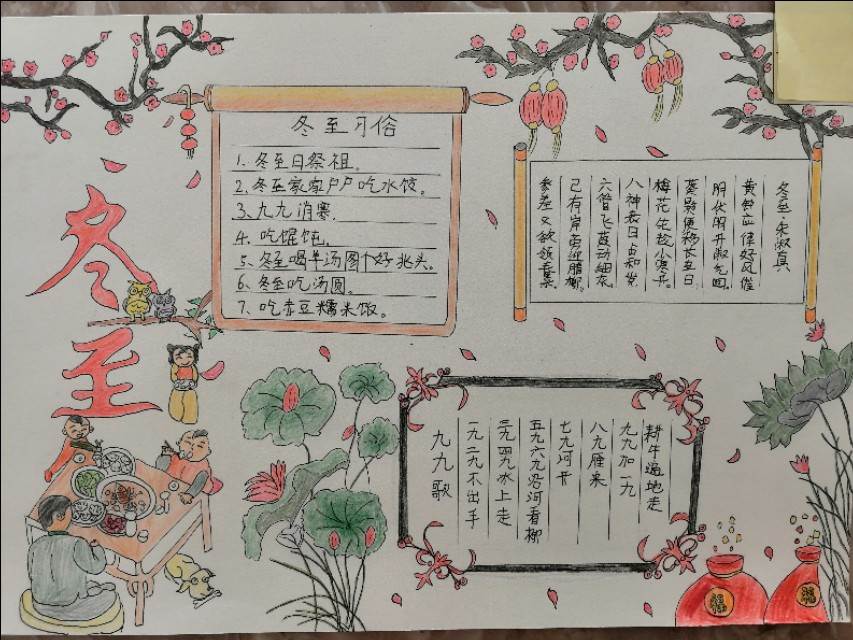 冬至
冬至习俗
1. 冬至日祭祖。
2. 冬至家家户户吃水饺。
3、九九消寒.
4. 吃馄饨.
5、冬至喝羊汤图个好兆头。
6、冬至吃汤圆。
7、吃赤豆糯米饭。
冬至·朱淑真
黄钟应律好风催
阴伏阳升淑气回
葵影便移长至日
梅花先趁小寒开
八神表日占和岁
六管飞葭动细灰
已有岸旁迎腊柳
参差又欲领春来
九九歌
一九二九不出手
三九四九冰上走
五九六九沿河看柳
七九河开
八九雁来
九九加一九
耕牛遍地走
福
福